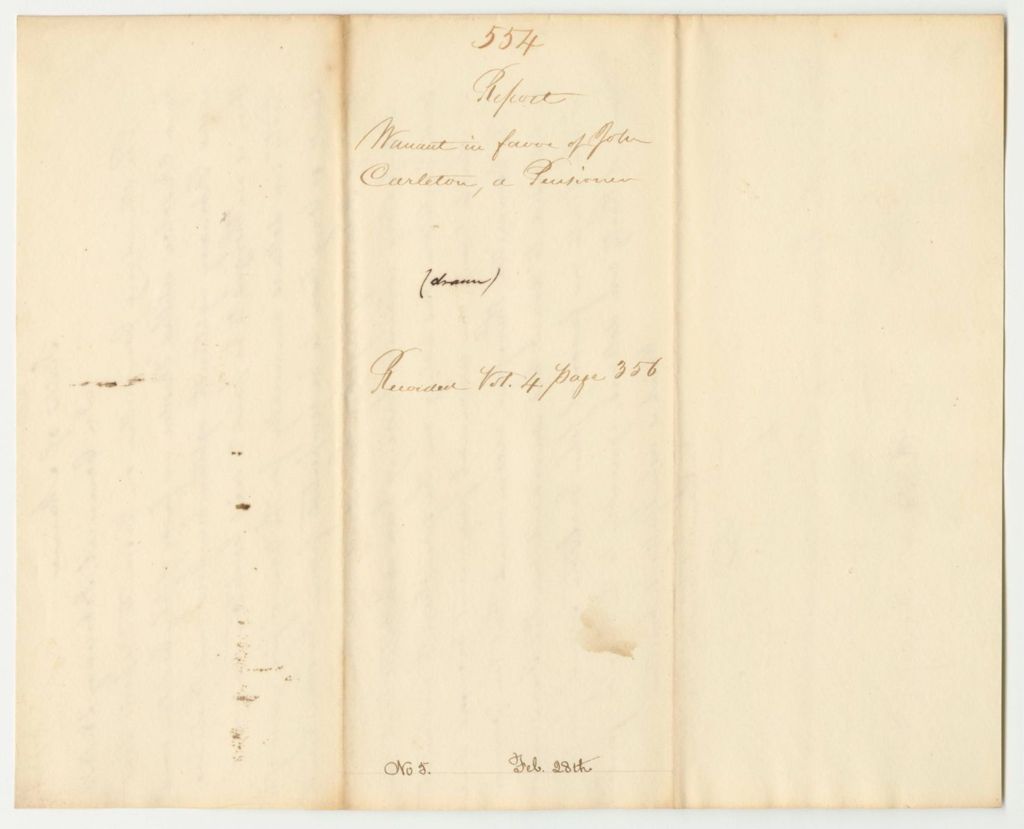 554
Report
Warrant in favor of John
Carleton, a Pensioner
(drawn)
Recorded Vol. 4 page 356
No 5. Feb. 28th